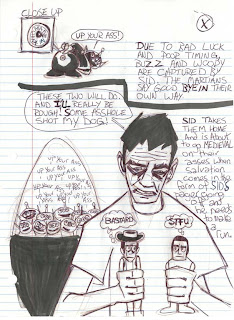 CLOSE UP
X
UP YOUR ASS!
DUE TO BAD LUCK
AND POOR TIMING,
BUZZ AND WOODY
ARE CAPTURED BY
SID. THE MARTIANS
SAY GOOD BYE IN THEIR
OWN WAY.
THESE TWO WILL DO,
AND I'LL REALLY BE
ROUGH! SOME ASSHOLE
SHOT MY DOG!
SID TAKES
THEM HOME
AND is ABouT
to go MEDIEVAL
on their
asses when
salvation
comes in the
form of SIDS
pager going
off and
he needs
to make
a run.
UP YOUR ASS
BASTARD
STFU